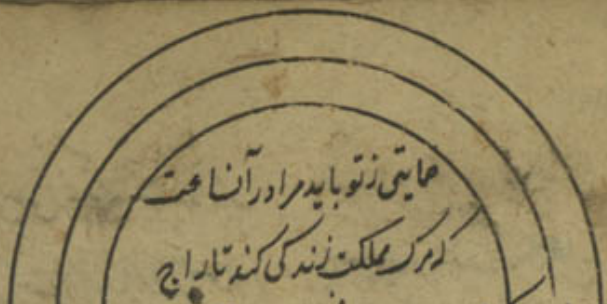 حمایتی ز تو باید مرا در آنساعت
که مرک مملکت زندکی کند تاراج